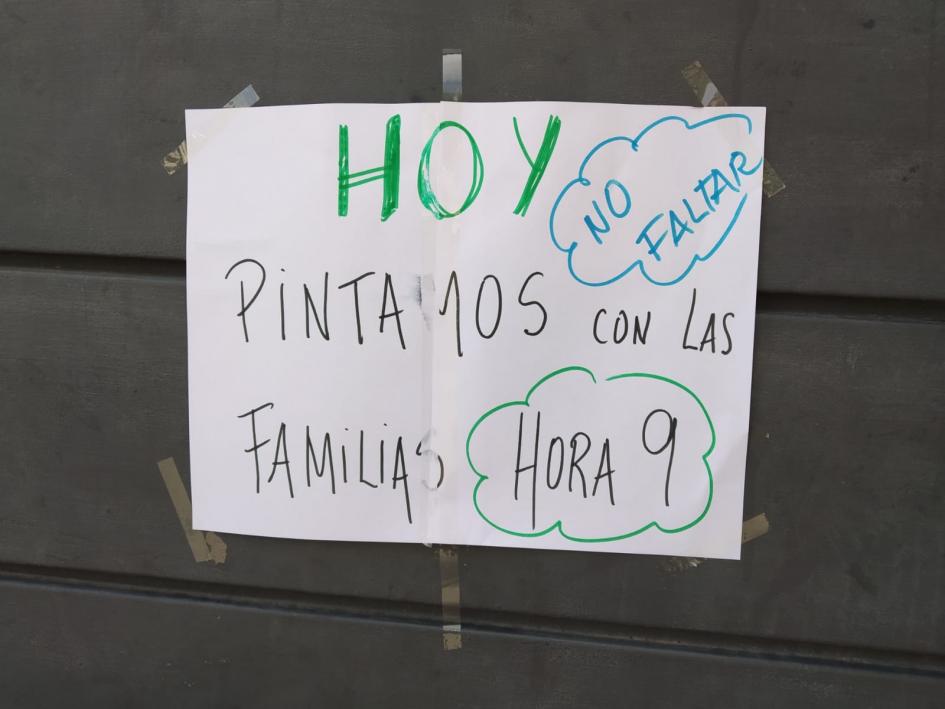 HOY
NO
FALTAR
PINTAMOS CON LAS
FAMILIAS
HORA 9